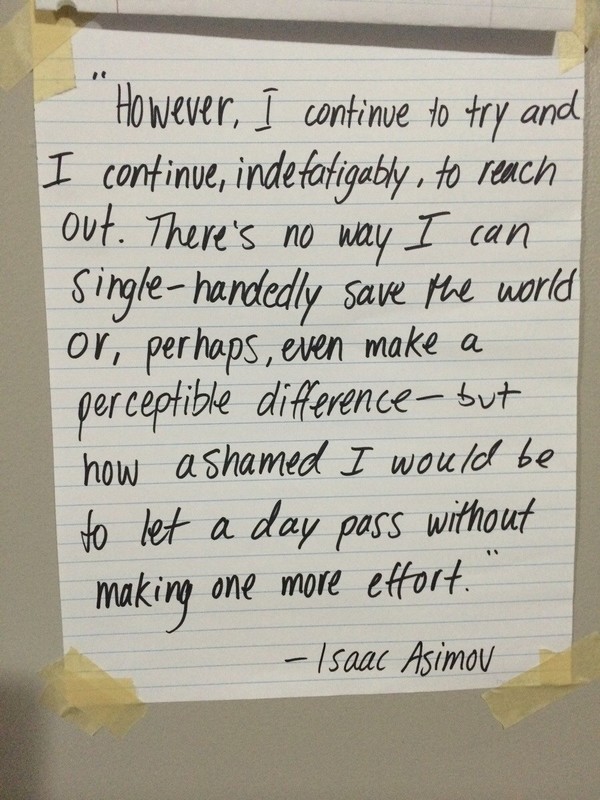 "However, I continue to try and
I continue, indefatigably, to reach
out. There's no way I can
single-handedly save the world
or, perhaps, even make a
perceptible difference- but
how ashamed I would be
to let a day pass without
making one more effort."
- Isaac Asimov